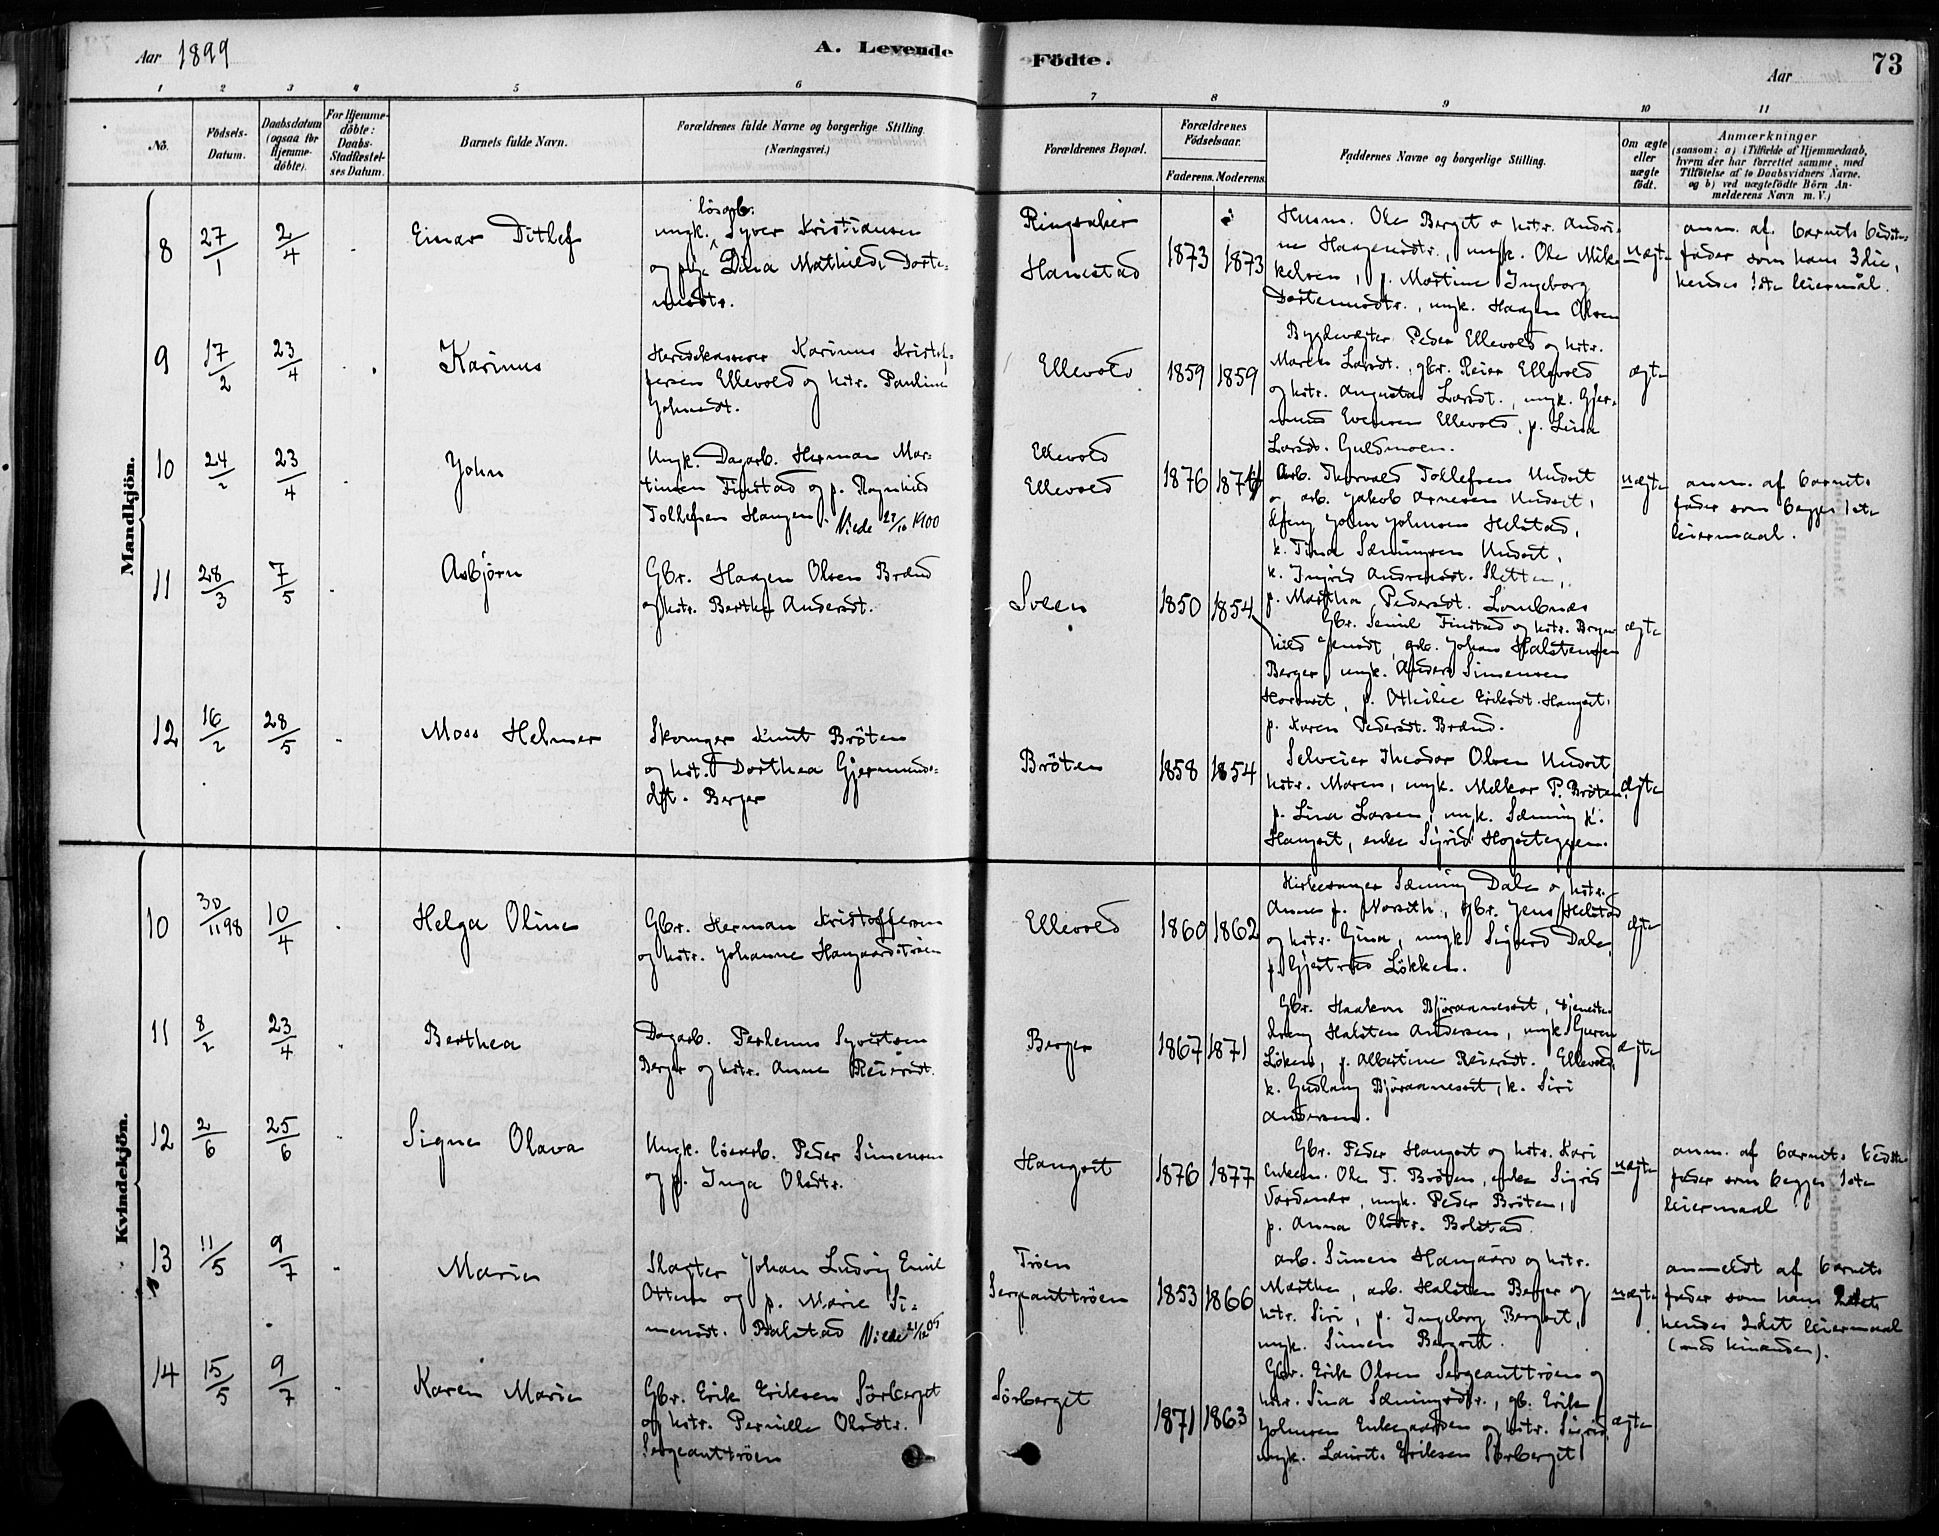 Aar 1899
A. Levende
Födte.
Aar
73
1 2 3 4 5 6 7 8 9 10 11
No.
Födsels-
Datum.
Daabsdatum
(ogsaa for
Hjemme-
döbte).
For Hjemme-
döbte:
Daabs-
Stadfæstel-
ses Datum.
Barnets fulde Navn.
Forældrenes fulde Navne og borgerlige Stilling
(Næringsvei.)
Forældrenes Bopæl.
Forældrenes
Födselsaar.
Faderens. Moderens.
Faddernes Navne og borgerlige Stilling.
Om ægte
eller
uægte
födt.
Anmærkninger
(saasom: a) i Tilfælde af Hjemmedaab,
hvem der har forrettet samme, med
Tilföielse af to Daabsvidners Navne.
og b) ved uægtefödte Börn An-
melderens Navn m. V.)
Mandkjön.
8
27/1
2/4
Einar Ditlef
lösarb.
ungk. Syver Kristiansen
og pige Dina Mathilde Dorte-
Ringsaker
Hanestad
1873 1873
Husm. Ole Berget o hstr. Andri-
ne Haagensdtr., ungk. Ole Mik-
kelsen, p. Martine Ingeborg
ungk. Haagen Olsen
uægte
anm. af barnets bedste-
fader som hans 3die,
hendes 1ste leiermål.
9
17/2
23/4
Karinus
Herredskasserer Karinus Kristof-
fersen Ellevold og hstr. Pauline
Johnsdt.
Ellevold
1859 1859
Peder Ellevold og hstr.
Maren Larsdt., gbr. Reier Ellevold
og hstr. Augusta Larsdt., ungk. Gjer-
mund Evensen Ellevold, p. Lina
Larsdt. Guldmoen.
ægte
10
24/2
23/4
John
Ungk. Dagarb. Herman Mar-
tinsen Finstad og p. Ragnhild
Tollefsen Haugen. Viede 27/10 1900
Ellevold
Ellevold
1876 1876
Arb. Thorvald Tollefsen Undset
og arb. Jakob Arnesen Undset,
John Johnsen Helstad,
k. Tina Sæmingsen Undset,
k. Ingrid Andreasdt. Sletten,
p. Martha Pedersdt. Lombnæs
uægte
anm. af barnets
fader som begges 1ste
leiermaal.
11
28/3
7/5
Asbjörn
Gbr. Haagen Olsen Brænd
og hstr. Berthe Andersdt.
Sveen
1850 1854
Gbr. Semil Finstad og hstr.
Johan Halstensen
Berger, ungk. Anders Simensen
p. Othilie Eriksdt. Hangset,
p. Karen Pedersdt. Brænd.
ægte
12
16/2
28/5
Moss Helmer
Skomager Knut Bröten
og hst. Dorthea Gjermunds-
dt. Berger
Bröten
1858 1854
Selveier Theodor Olsen Undset
hstr. Maren, ungk. Melkor P. Bröten,
p. Lina Larsen, ungk. Sæming K.
Hangset, enke Sigrid
ægte
Kvindekjön.
10
30/11 98
10/4
Helga Oline
Gbr. Herman Kristoffersen
og hstr. Johanne Haugaardströen
Ellevold
1860 1862
Kirkesanger Sæming Dale o hstr.
Anne f. Norseth, gbr. Jens Helstad
og hstr. Gina, ungk. Sigurd Dale,
p. Gjertrud Lökken.
ægte
11
8/2
23/4
Berthea
Dagarb. Perhenus Syvertsen
Berger og hstr. Anne Reiersdt.
Berger
1867 1871
Gbr. Haakon Björaanesset, tjeneste-
dreng Halsten Andersen, ungk. Guren
Löken, p. Albertine Reiersdt. Ellevold,
k. Gudlaug Björaanesset, k. Siri
Andersen.
ægte
12
2/6
25/6
Signe Olava
Ungk. lösarb. Peder Simensen
og p. Inga Olsdtr.
Hangset
1876 1877
Gbr. Peder Hangset og hstr. Kari
Enkem. Ole T. Bröten, enke Sigrid
ungk. Peder Bröten,
p. Anna Olsdtr. Bolstad.
uægte
anm. af barnets bedste-
fader som begges 1ste
leiermaal
13
11/5
9/7
Marie
Slagter Johan Ludvig Emil
Ottesen og p. Marie Si-
mensdt. Bolstad Viede 21/12 05
Tröen
Sergeanttröen
1853 1866
arb. Simen Haugaard og hstr.
Marthe, arb. Halsten Berger og
hstr. Siri, p. Ingeborg Bergset,
ungk. Simen Bergset.
uægte
anmeldt af barnets
fader som hans 2det
hendes 2det leiermaal
(med hinanden).
14
15/5
9/7
Karen Marie
Gbr. Erik Eriksen Sörberget
og hstr. Pernille Olsdtr.
Sergeanttröen
Sörberget
1871 1863
Gbr. Erik Olsen Sergeanttröen og
hstr. Sina Sæmingsdtr., gb. Erik
Johnsen Enkegaarden og hstr. Sigrid,
ungk. Laurits Eriksen Sörberget
ægte